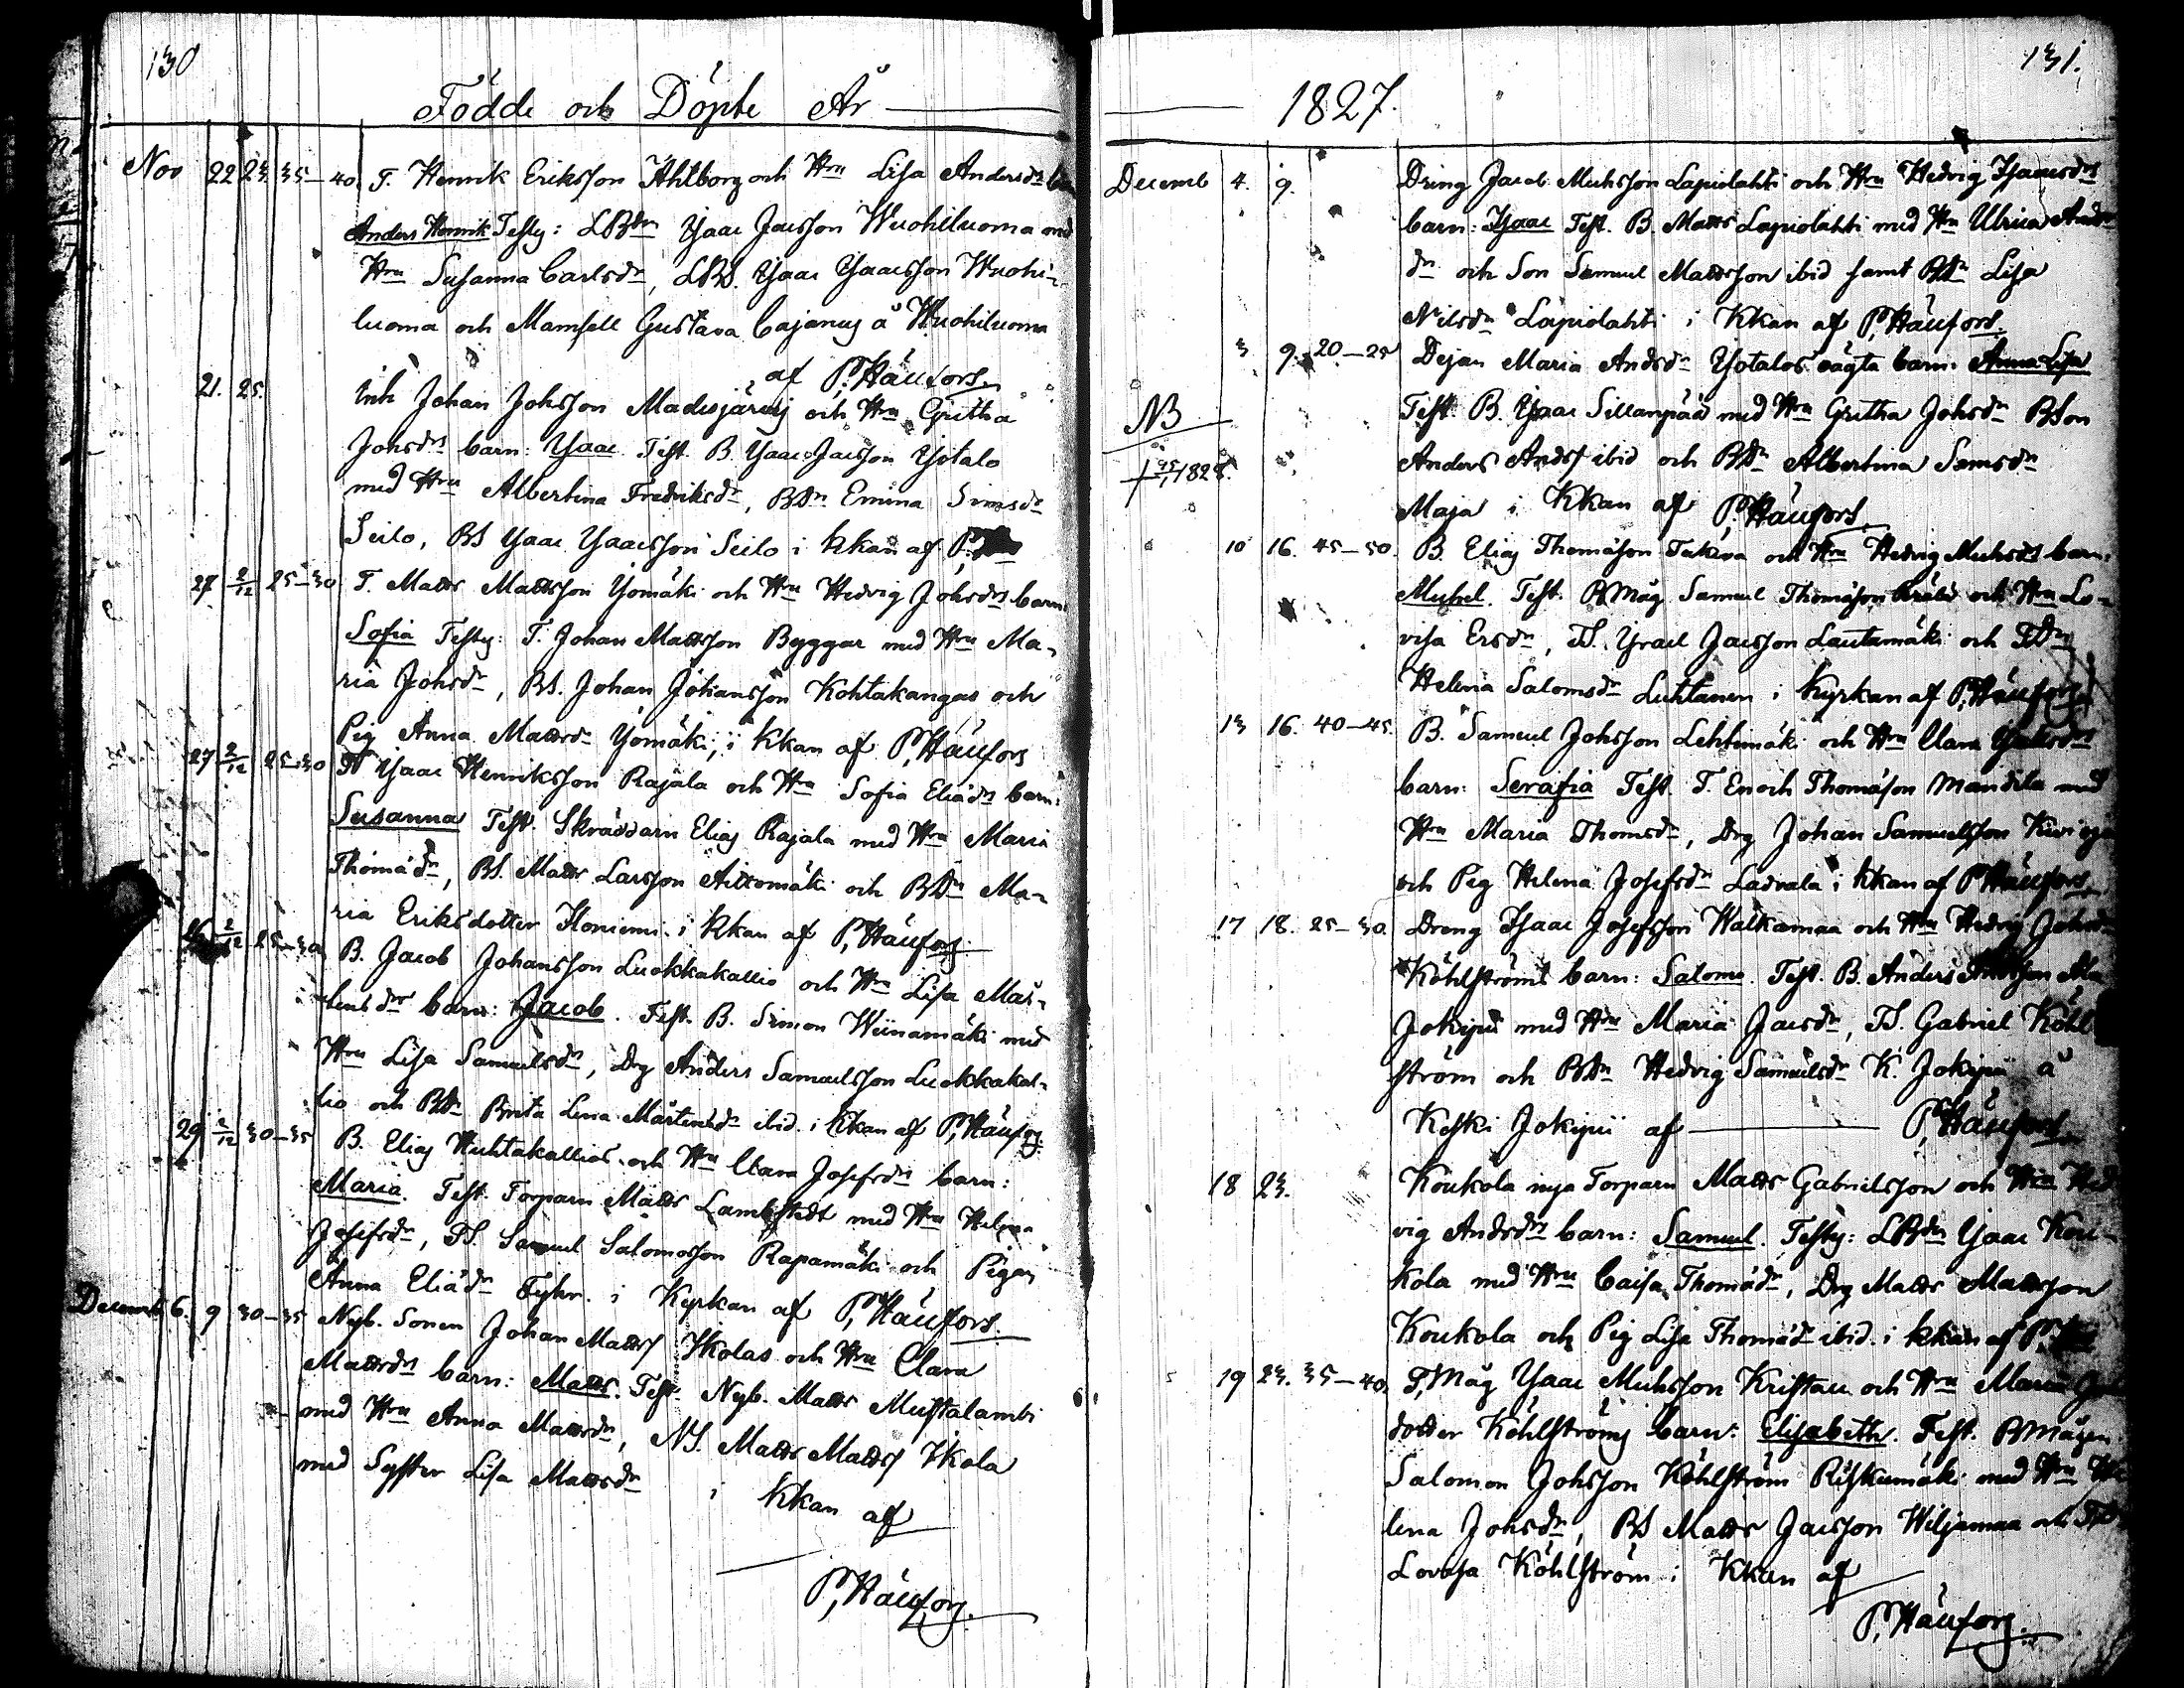 130
Födde och Döpte År
Nov 22 23 35–40 T. Henrik Eriksson Ahlborg och Hru Lisa Andersdrs barn
Anders Henrik Testes: LBdn Ysaac Jacsson Wuohiluoma med
Hru Susanna Carlsdr, LBS. Ysaac Ysaacsson Wuohi-
luoma och Mamsell Gustava Cajanus å Wuohiluoma
af P. Häufors
21. 25. Inh Johan Johsson Madesjärvj och Hru Gretha
Johsdrs barn: Ysaac. Test. B. Ysaac Jacsson Yötalo
med Hru Albertina Fredriksdr, BDn Emina Simsdr
Seilo, BS Ysaac Ysaacsson Seilo i kkan af P.
27 2/12 25–30 T. Matts Mattsson Yömäki och Hru Hedvig Johsdrs barn:
Sofia Testes: T. Johan Mattsson Byggar med Hru Ma-
ria Johsdr, BS. Johan Johansson Kohtakangas och
Pig Anna Mattsdr Yömäki, i Kkan af P. Häufors
27 2/12 25–30 Ysaac Henriksson Rajala och Hru Sofia Eliädrs barn:
Susanna Test. Skräddarn Elias Rajala med Hru Maria
Thomädr, BS. Matts Larsson Aittomäki och BDn Ma-
ria Eriksdotter Honiemi i kkan af P. Häufors
2/12 25–30 B. Jacob Johansson Luokkakallio och Hru Lisa Mar-
tensdrs barn: Jacob. Test. B. Simon Wiinamäki med
Hru Lisa Samuelsdr, Drg Anders Samuelsson Luokkakal-
lio och BDn Brita Lena Mårtensdr ibid. i Kkan af P. Häufors
29 2/12 30–35 B. Elias Huhtakallios och Hru Clara Josefsdrs barn:
Maria. Test. Torparn Matts Lambstedt med Hru Helena
Josefsdr, TS. Samuel Salomosson Rapamäki och Pigan
Anna Eliädr Fyhr. i Kyrkan af P. Häufors.
Decemb 6. 9 30–35 Nyb. Sonen Johan Mattss Ikolas och Hru Clara
Mattsdrs barn: Matts. Test. Nyb. Matts Mustalambi
med Hru Anna Mattsdr, NS. Matts Mattss Ikola
med Syster Lisa Mattsdr i Kkan af
P. Häufors.
131.
1827.
Decemb 4. 9. Dreng Jacob Michsson Lapiolahti och Hru Hedvig Isaacsdrs
barn: Ysaac Test. B. Matts Lapiolahti med Hru Ulrica Anders
dr och Son Samuel Mattsson ibid samt BDn Lisa
Nilsdr Lapiolahti i Kkan af P. Häufors.
3 9. 20–25 Dejan Maria Andsdr Yötalos oägta barn: Anna Lisa
NB Test. B. Ysaac Sillanpää med Hru Gretha Johsdr BSon
1828. Anders Andss ibid och BDn Albertina Samsdr
Maja i Kkan af P. Häufors.
10 16. 45–50. B. Elias Thomäson Takeva och Hru Hedvig Michsdrs barn:
Michel. Test. BMåg Samuel Thomäson och Hru Lo-
visa Ersdr, TS. Ysrael Jacsson Lautamäki och TDn
Helena Salomsdr Luhtanen i Kyrkan af P. Häufors
13 16. 40–45. B. Samuel Johsson Lehtimäki och Hru Clara
barn: Serafia Test. T. Enoch Thomäson Mandila med
Hru Maria Thomsdr, Drg Johan Samuelsson
och Pig Helena Josefsdr Ladvala i kkan af P. Häufors
17 18. 25–30. Dreng Isaac Josefsson Walkamaa och Hru Hedvig Johsdr
Köhlströms barn: Salomo. Test. B. Anders
Jokipii med Hru Maria Jacsdr, TS. Gabriel Köhl
ström och BDn Hedvig Samuelsdr K. Jokipii å
Koski Jokipii af P. Häufors
18 23. Koukola nya Torparn Matts Gabrielsson och Hru Hed
vig Andsdrs barn: Samuel. Testes: LBdn Ysaac Kou-
kola med Hru Caisa Thomädr, Drg Matts Mattsson
Koukola och Pig Lisa Thomädr ibid. i kkan af P.
19 23. 35–40. T. Måg Ysaac Michsson Kristau och Hru Maria
dotter Köhlströms barn: Elisabeth. Test. BMågen
Salomon Johsson Köhlström Riskumäki med Hru He
lena Johsdr, BS Matts Jacsson Wiljamaa och
Lovisa Köhlström i Kkan af
P. Häufors.